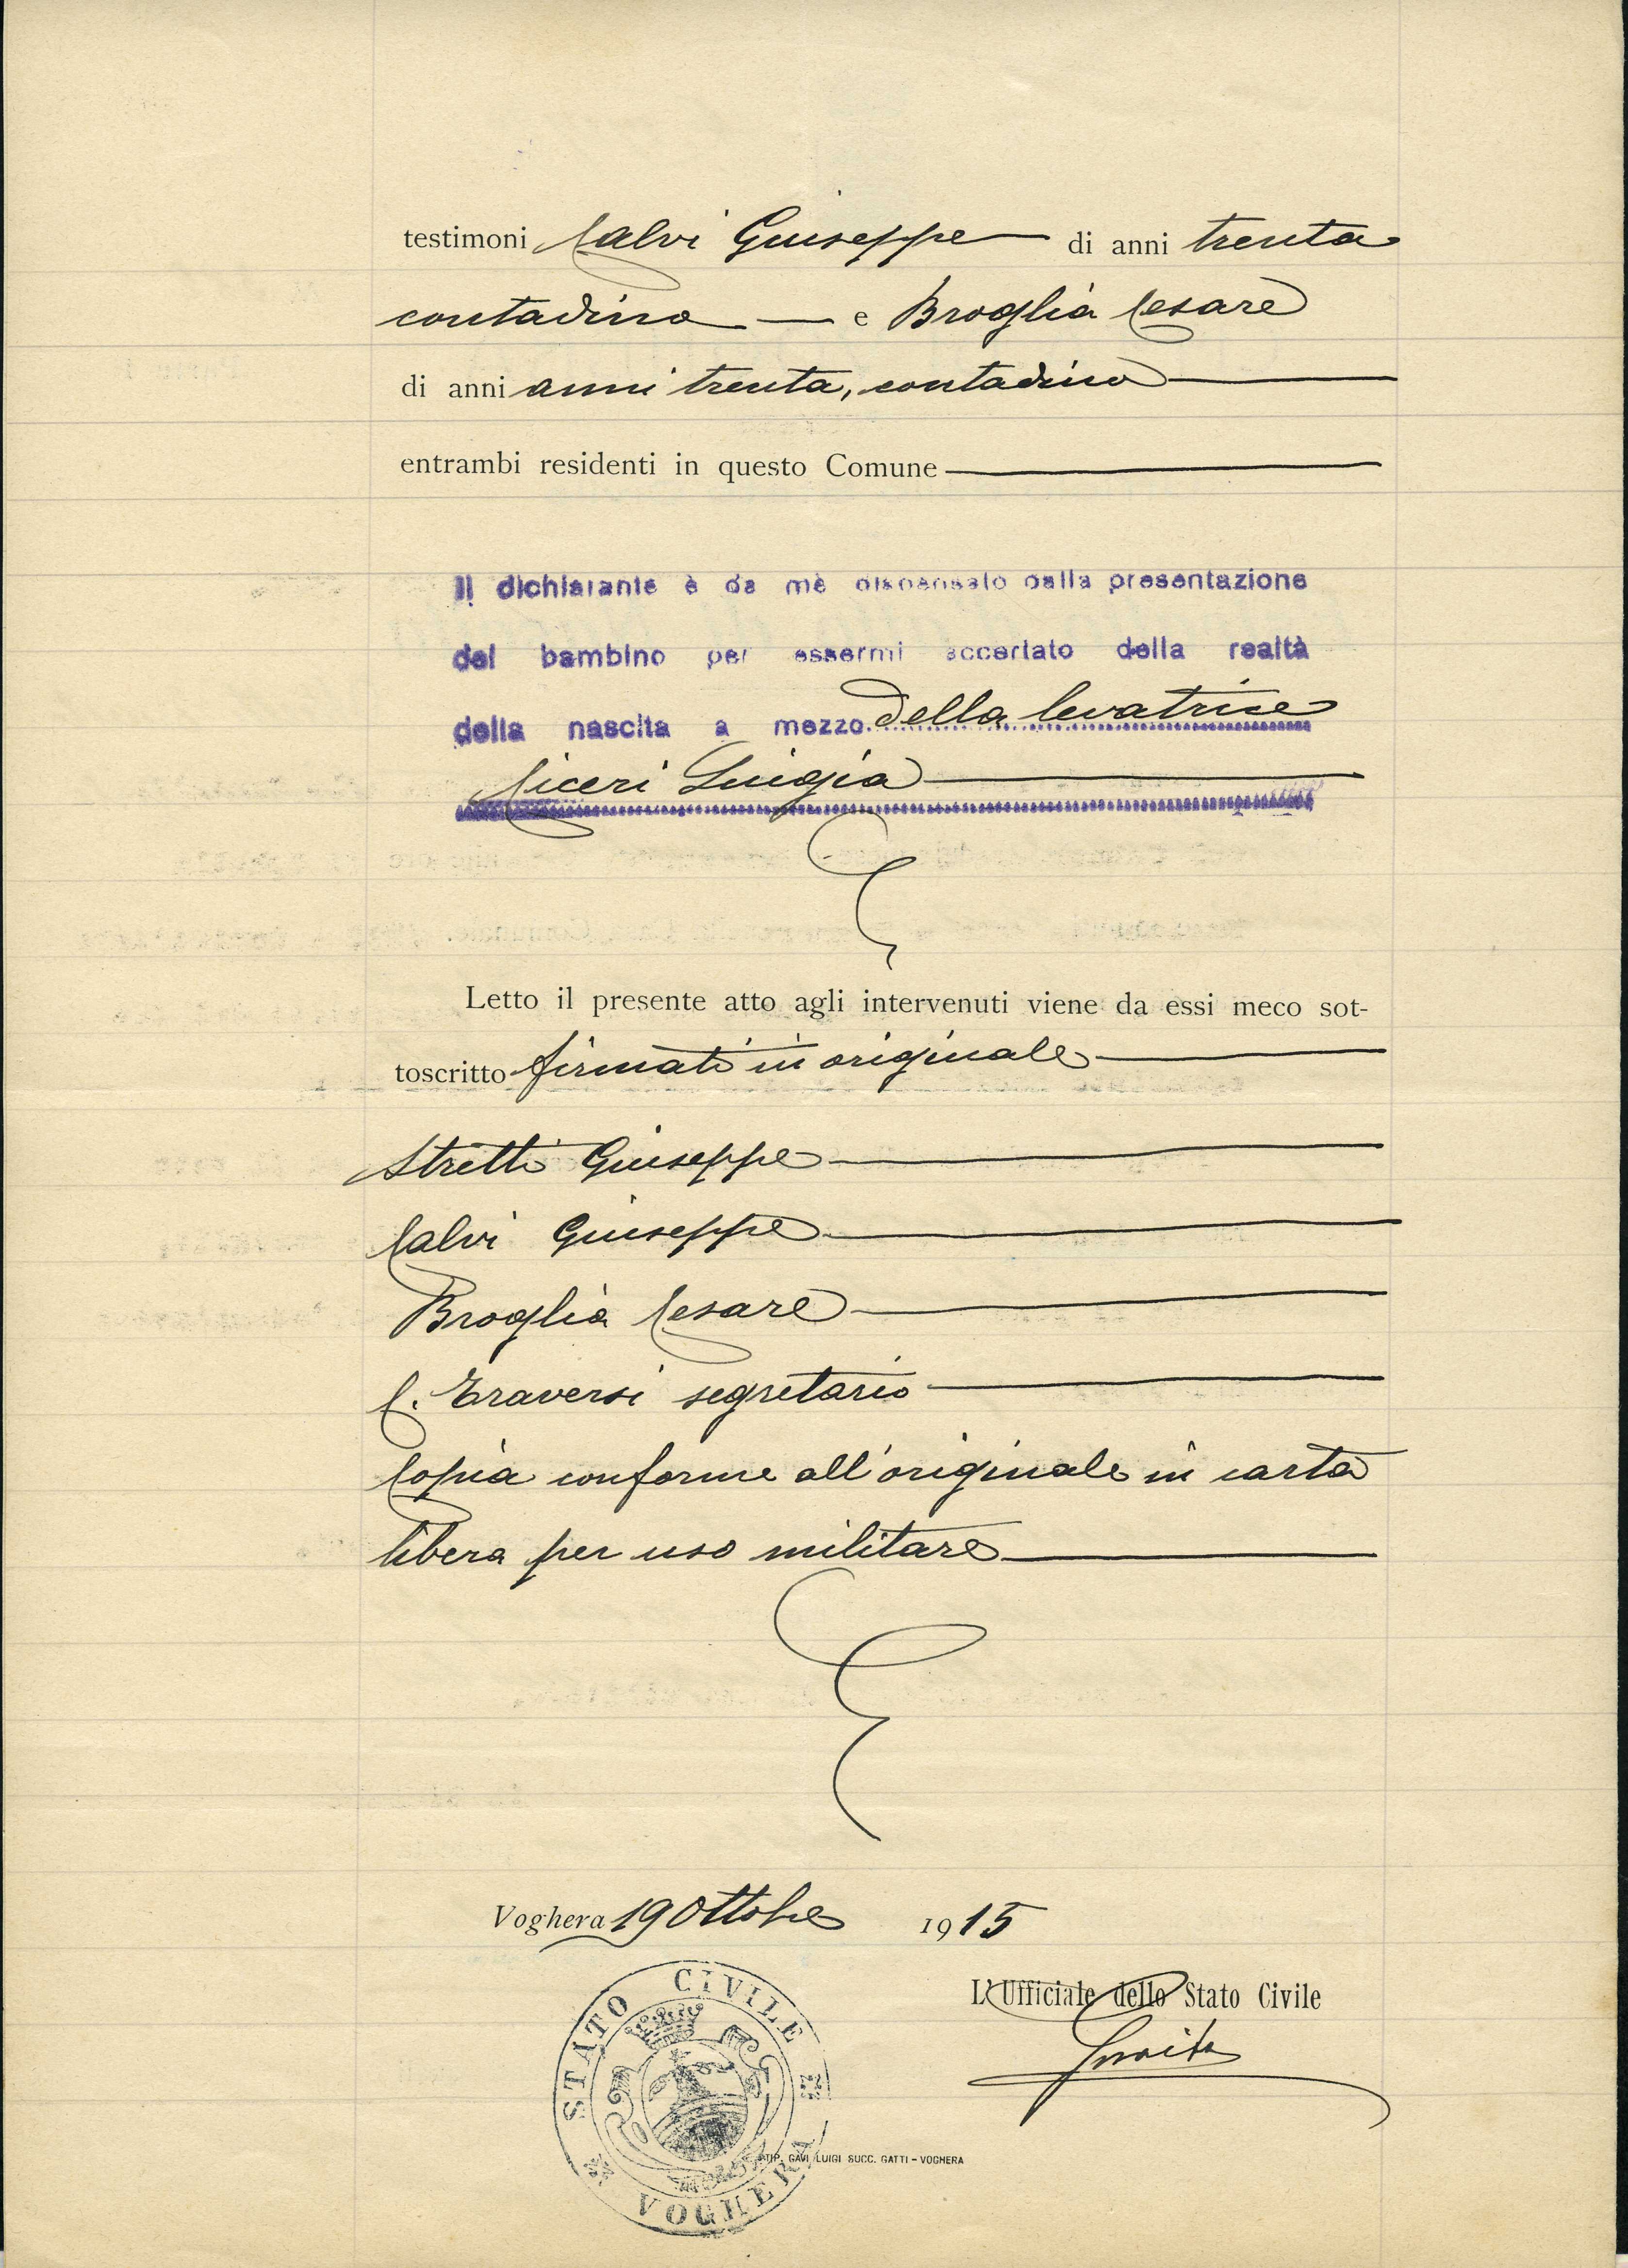 testimoni Calvi Giuseppe — di anni trenta
contadino — e Broglia Cesare
di anni anni trenta, contadino —
entrambi residenti in questo Comune —
Il dichiarante è da mè dispensato dalla presentazione
del bambino per essermi accertato della realtà
della nascita a mezzo della levatrice
Ciceri Luigia —
Letto il presente atto agli intervenuti viene da essi meco sot-
toscritto firmati in originale —
Stretti Giuseppe —
Calvi Giuseppe —
Broglia Cesare —
C. Traversi segretario —
Copia conforme all'originale in carta
libera per uso militare —
Voghera 19 Ottobre 1915
L'Ufficiale dello Stato Civile
STATO CIVILE
VOGHERA
TIP. GAVI LUIGI SUCC. GATTI - VOGHERA